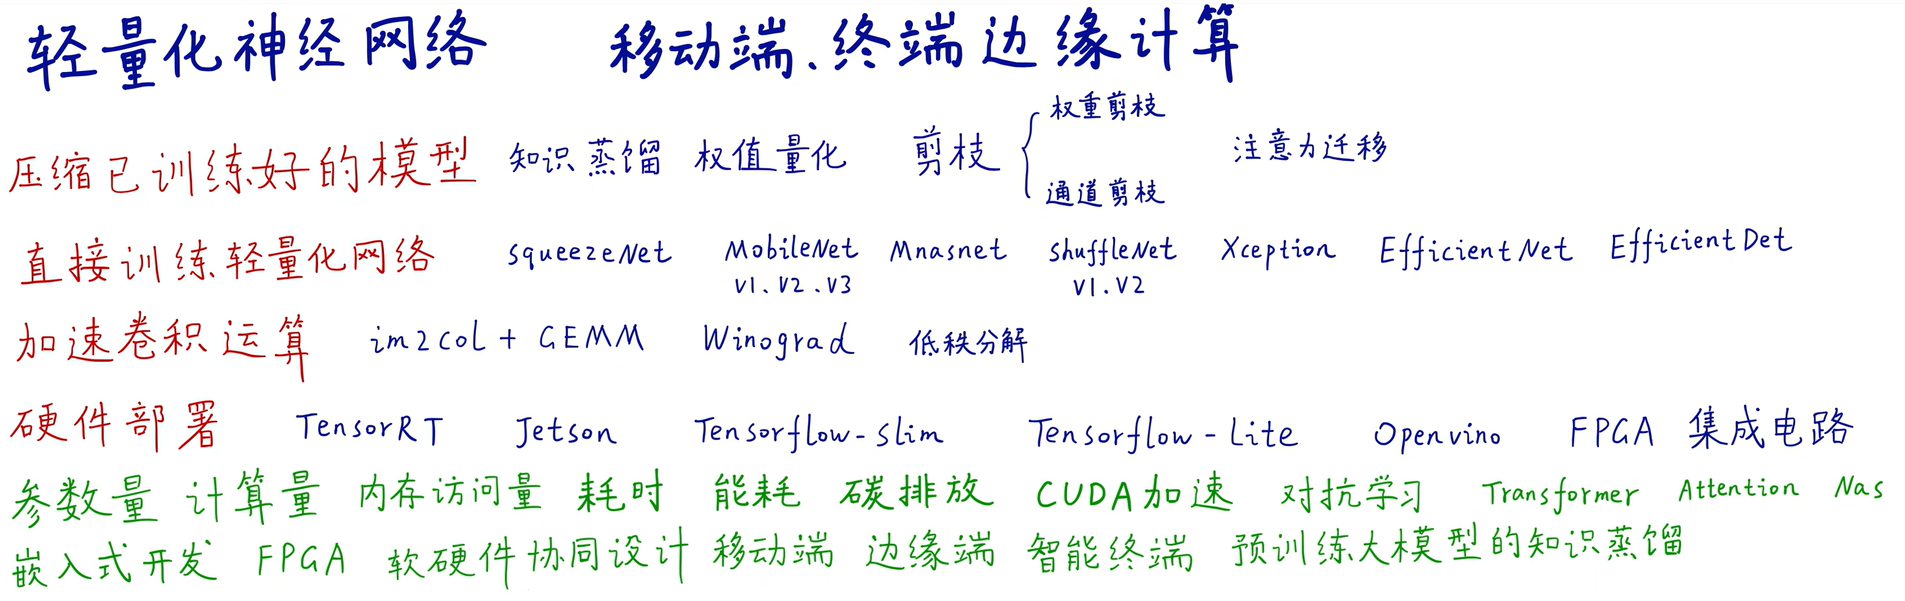 轻量化神经网络 移动端、终端边缘计算
压缩已训练好的模型 知识蒸馏 权值量化 剪枝 { 权重剪枝 注意力迁移
通道剪枝
直接训练轻量化网络 squeezeNet MobileNet Mnasnet shuffleNet Xception EfficientNet EfficientDet
V1、V2、V3 V1、V2
加速卷积运算 im2col + GEMM Winograd 低秩分解
硬件部署 TensorRT Jetson Tensorflow-slim Tensorflow-Lite Openvino FPGA 集成电路
参数量 计算量 内存访问量 耗时 能耗 碳排放 CUDA加速 对抗学习 Transformer Attention Nas
嵌入式开发 FPGA 软硬件协同设计 移动端 边缘端 智能终端 预训练大模型的知识蒸馏